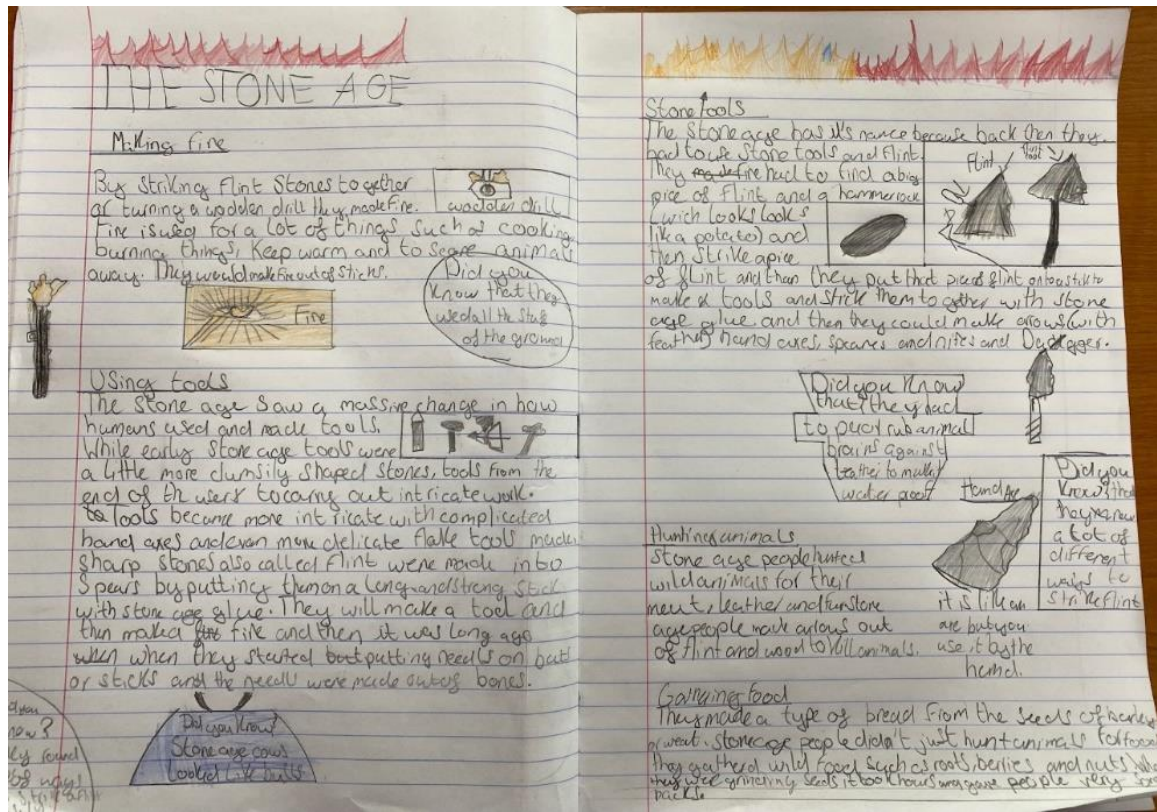 THE STONE AGE
Making fire
By striking flint stones together
or turning a wodden drill they made fire.
wodden drill
Fire is used for a lot of things such as cooking,
burning things, Keep warm and to scare animals
away. They would make fire out of sticks.
Fire
Did you
know that they
used all the stuff
of the ground
Using tools
The stone age saw a massive change in how
humans used and made tools.
While early stone age tools were
a little more clumsily shaped stones, tools from the
end of th users to carry out intricate work.
Tools became more intricate with complicated
hand axes and even more delicate flake tools made
sharp stones also called flint were made into
spears by putting them on a long and strong stick
with stone age glue. They will make a tool and
then maked fire and then it was long ago
when when they started but putting needls on
or sticks and the needls were made out of bones.
Did you know?
Stone age cows
Looked like bulls
now?
ly found
Stone tools
The stone age has it's name because back then they
had to use stone tools and flint.
They made fire had to find a big
pice of flint and a hammerock
(wich looks looks
like a potato) and
then strike a pice
Flint
flint
tool
of flint and than they put that pice of flint onto a stick to
make tools and strick them to gether with stone
age glue and then they could make arows (with
feather) hand axes, speares and nifes and Dagger.
Did you know
that they had
to rub animal
brains against
leather to make it
water proof
Hand Axe
it is like an
axe but you
use it by the
hand.
Did you
know? that
they knew
a lot of
different
ways to
strike flint
Hunting animals
Stone age people hunted
wild animals for their
meat, leather and fur stone
age people made arows out
of flint and wood to kill animals.
food
They made a type of bread from the seeds of barley
or weat. stone age people didn't just hunt animals for food
they gathered wild food such as roots, berries and nuts
they were grinering seeds it took hours and gave people very
backs.